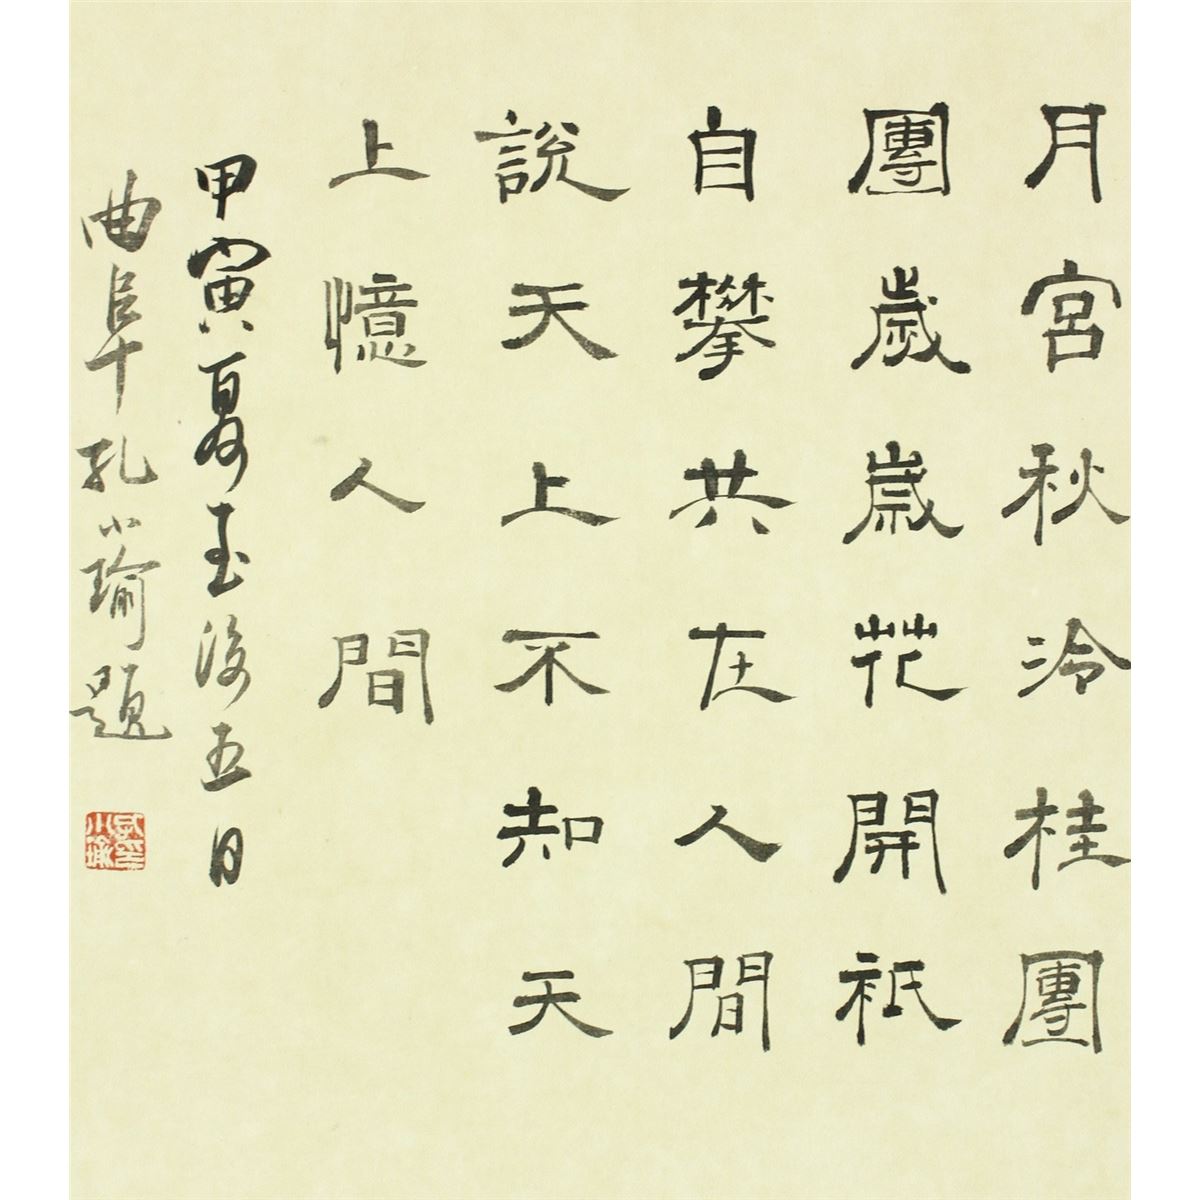 月宮秋冷桂團
團歲歲花開祇
自攀共在人間
說天上不知天
上憶人間
甲寅夏至後五日
曲阜孔小瑜題
孔印小瑜